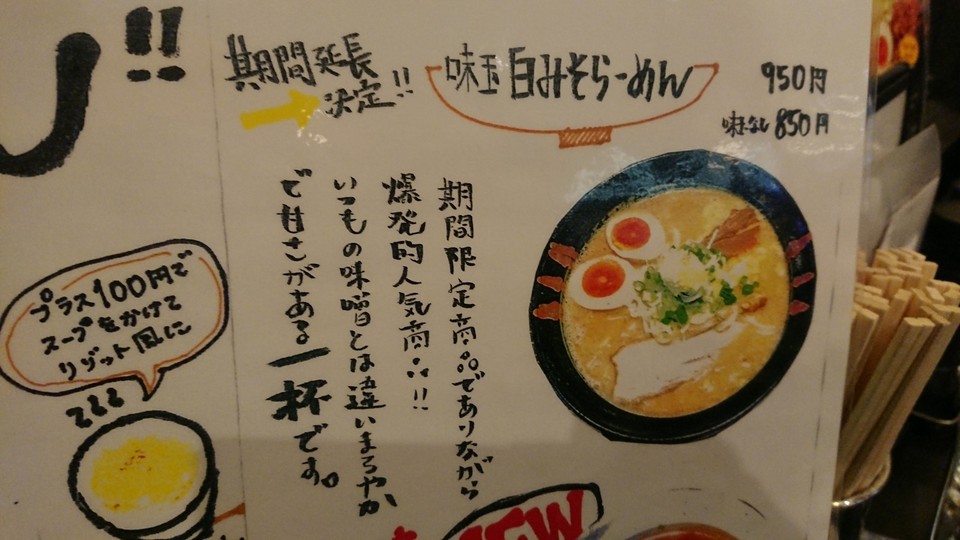 !!
期間延長
決定!!
味玉白みそらーめん
950円
味玉なし 850円
期間限定商品でありながら
爆発的人気商品!!
いつもの味噌とは違いまろやか
で甘さがある一杯です。
プラス100円で
スープをかけて
リゾット風に
NEW